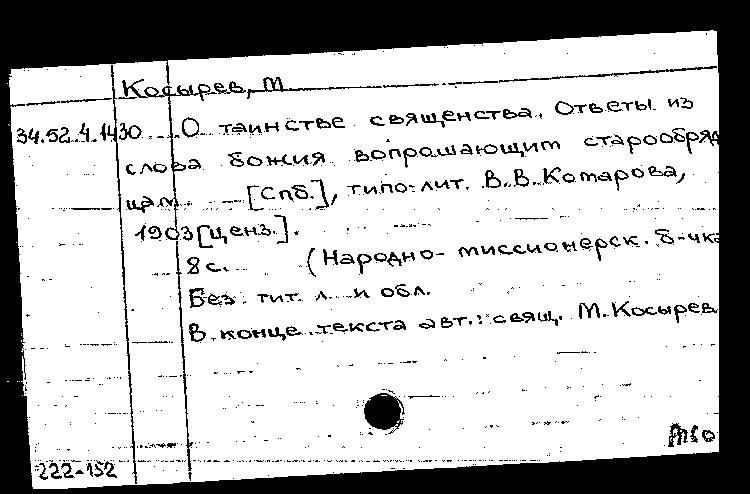 Косырев, М
34.52.4.1430 О таинстве священства. Ответы из
слова божия вопрошающим старообряд
цам. [Спб.], типо-лит. В.В.Комарова,
1903[ценз.].
8с. (Народно-миссионерск. б-чка
Без тит. л. и обл.
В конце текста авт.: свящ. М.Косырев
222-152